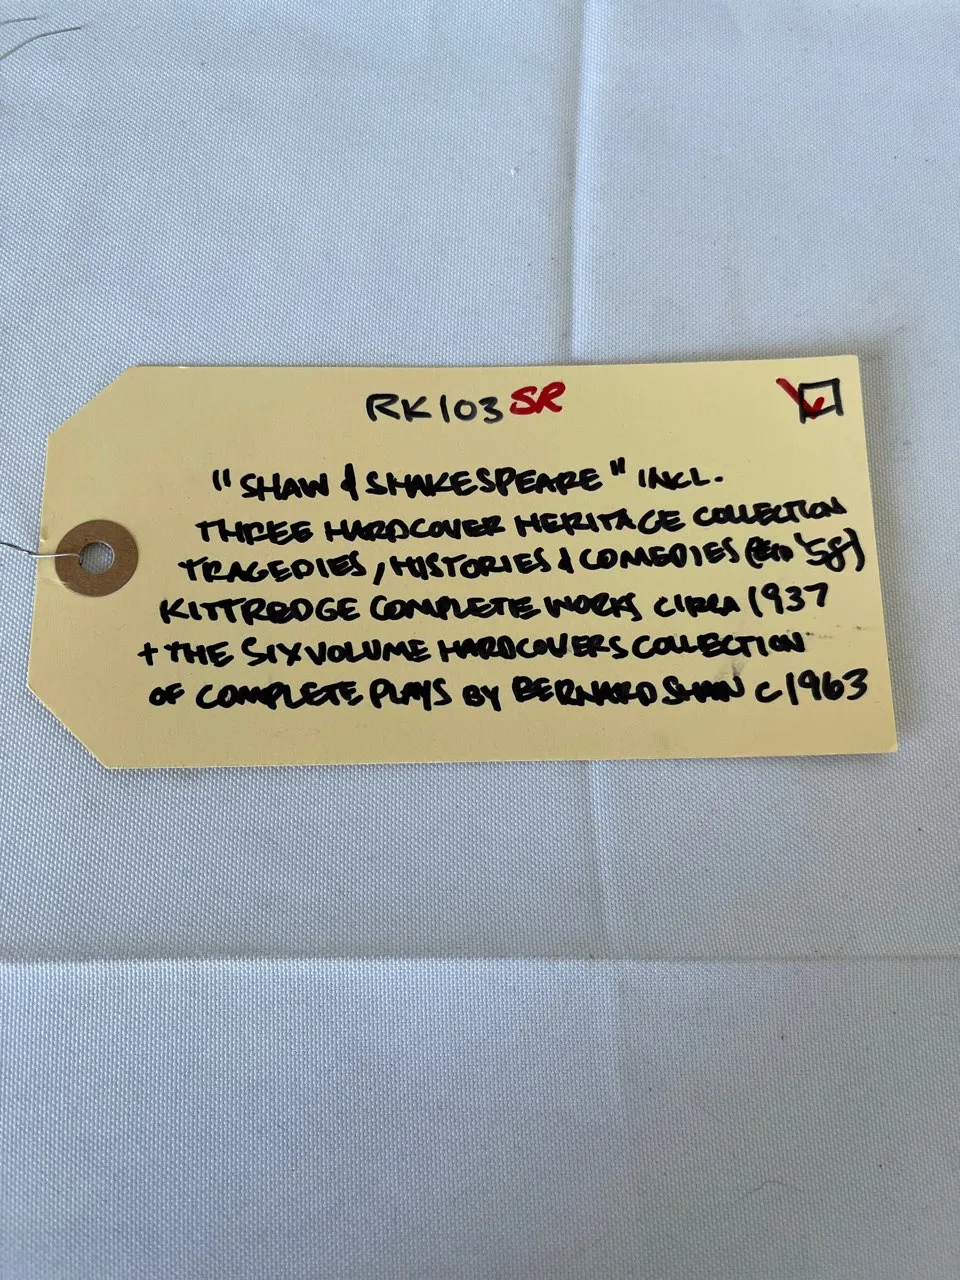 RK103 SR
"SHAW & SHAKESPEARE" INCL.
THREE HARDCOVER HERITAGE COLLECTION
TRAGEDIES, HISTORIES & COMEDIES ('58)
KITTREDGE COMPLETE WORKS CIRCA 1937
+ THE SIX VOLUME HARDCOVERS COLLECTION
OF COMPLETE PLAYS BY BERNARD SHAW C1963